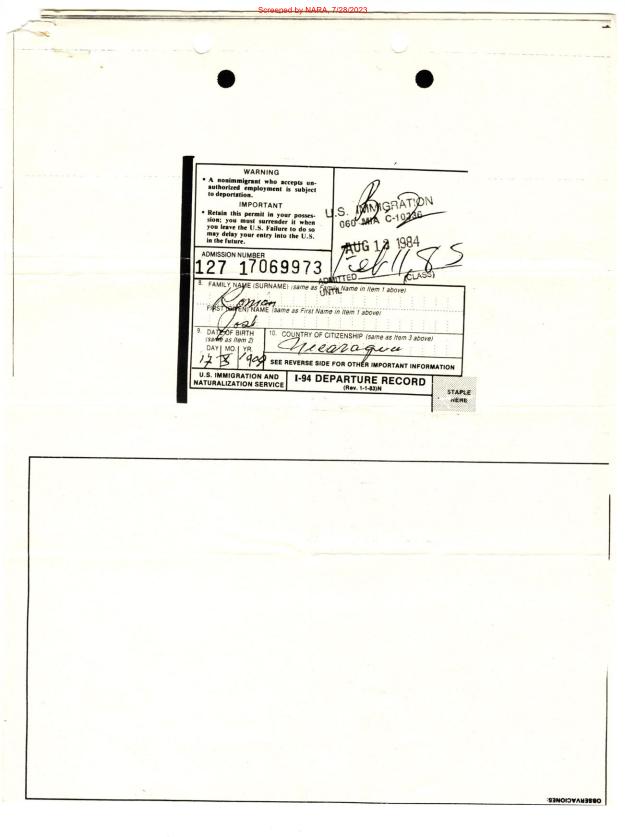 Screened by NARA, 7/28/2023
WARNING
• A nonimmigrant who accepts un-
authorized employment is subject
to deportation.
IMPORTANT
• Retain this permit in your posses-
sion; you must surrender it when
you leave the U.S. Failure to do so
may delay your entry into the U.S.
in the future.
U.S. IMMIGRATION
060 MIA C-10230
AUG 13 1984
Feb 11, 85
ADMITTED
UNTIL
(CLASS)
ADMISSION NUMBER
127 17069973
8. FAMILY NAME (SURNAME) (same as Family Name in Item 1 above)
Roman
FIRST (GIVEN) NAME (same as First Name in Item 1 above)
José
9. DATE OF BIRTH
(same as Item 2)
DAY MO. YR.
17
10. COUNTRY OF CITIZENSHIP (same as Item 3 above)
Nicaragua
SEE REVERSE SIDE FOR OTHER IMPORTANT INFORMATION
U.S. IMMIGRATION AND
NATURALIZATION SERVICE
I-94 DEPARTURE RECORD
(Rev. 1-1-83)N
STAPLE
HERE
OBSERVACIONES: